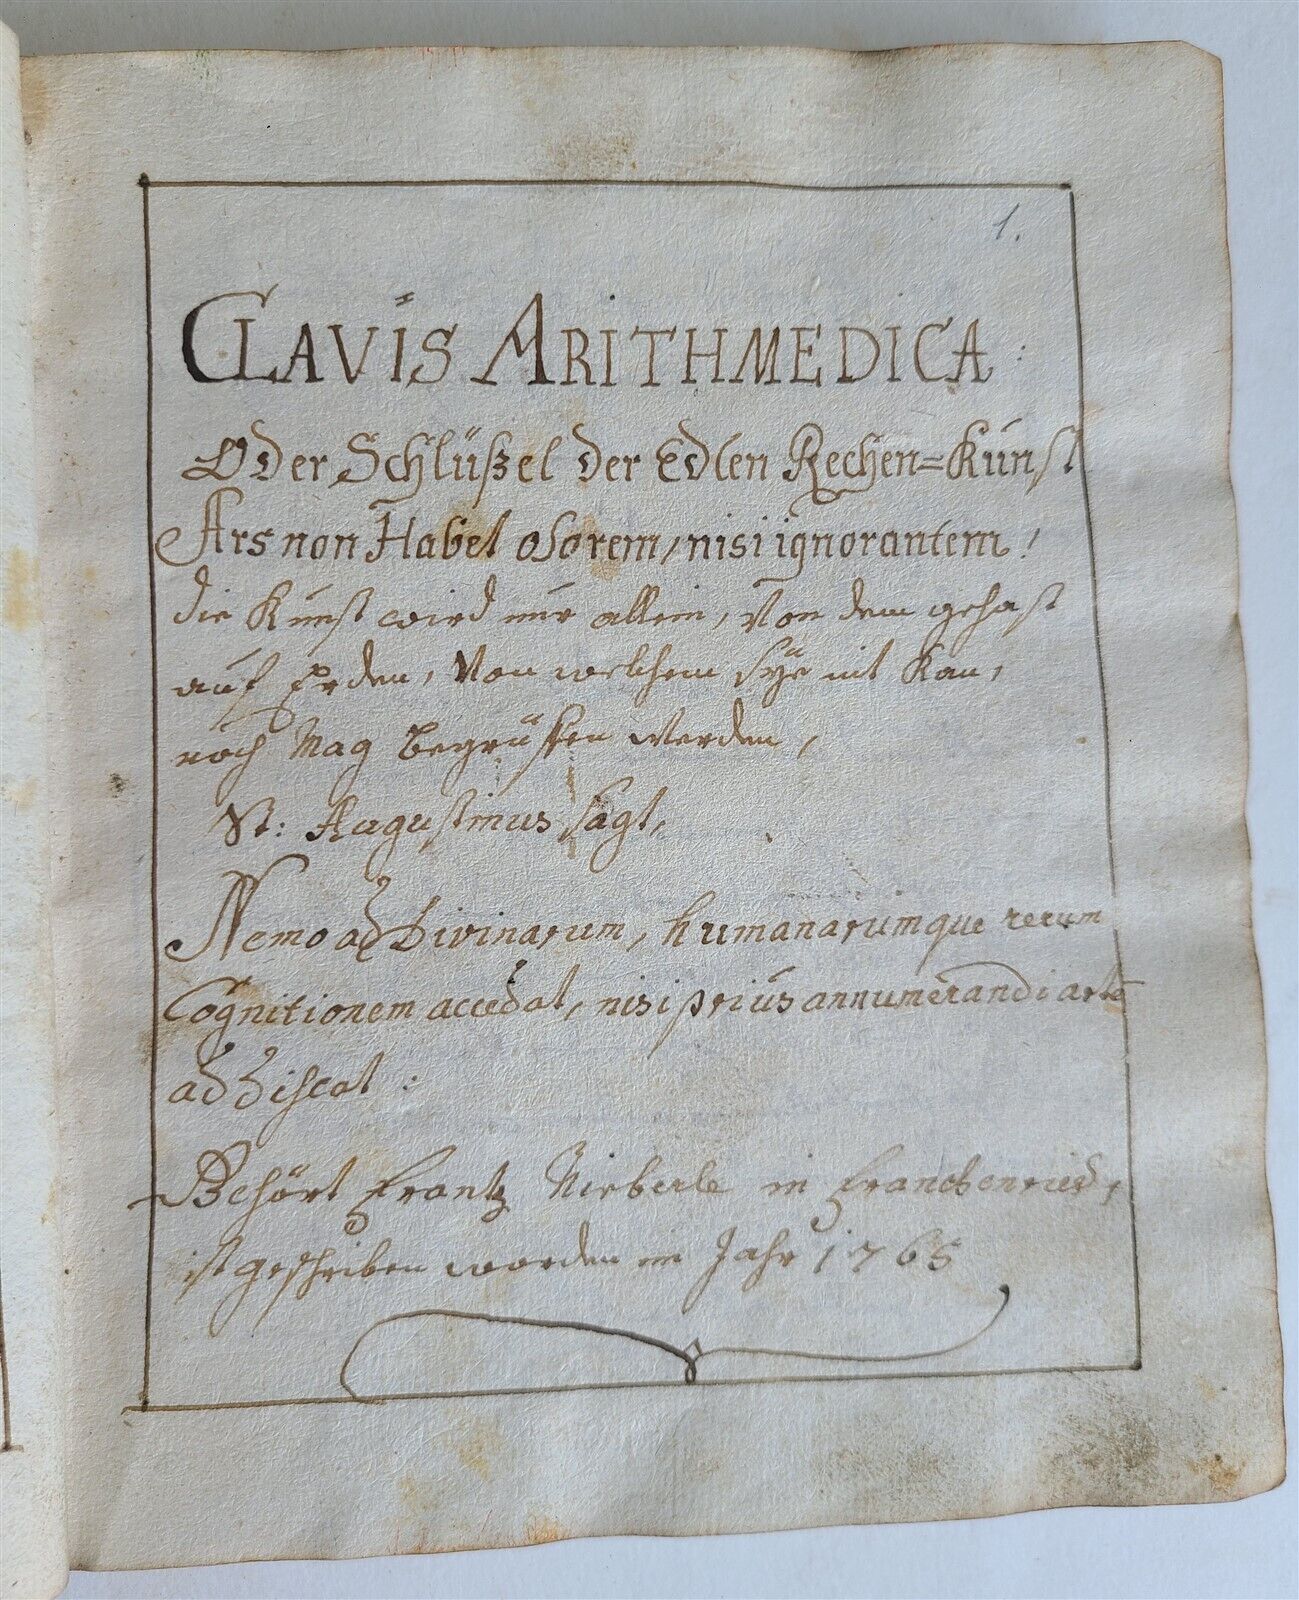 1.
CLAVIS ARITHMEDICA:
Oder Schlüßel der Edlen Rechen=Kunst
Ars non Habet osorem, nisi ignorantem!
die Kunst wird nur allein, Von dem gehast
auf Erden, Von welchem sÿe nit Kan,
noch Mag begrüffen werden,
St: Augustinus sagt,
Nemo ad Divinarum, humanarumque rerum
Cognitionem accedat, nisi priús annumerandi artē
addiscat:
Behört Frantz Nieberle in Franckenried,
ist geschriben worden im Jahr 1765